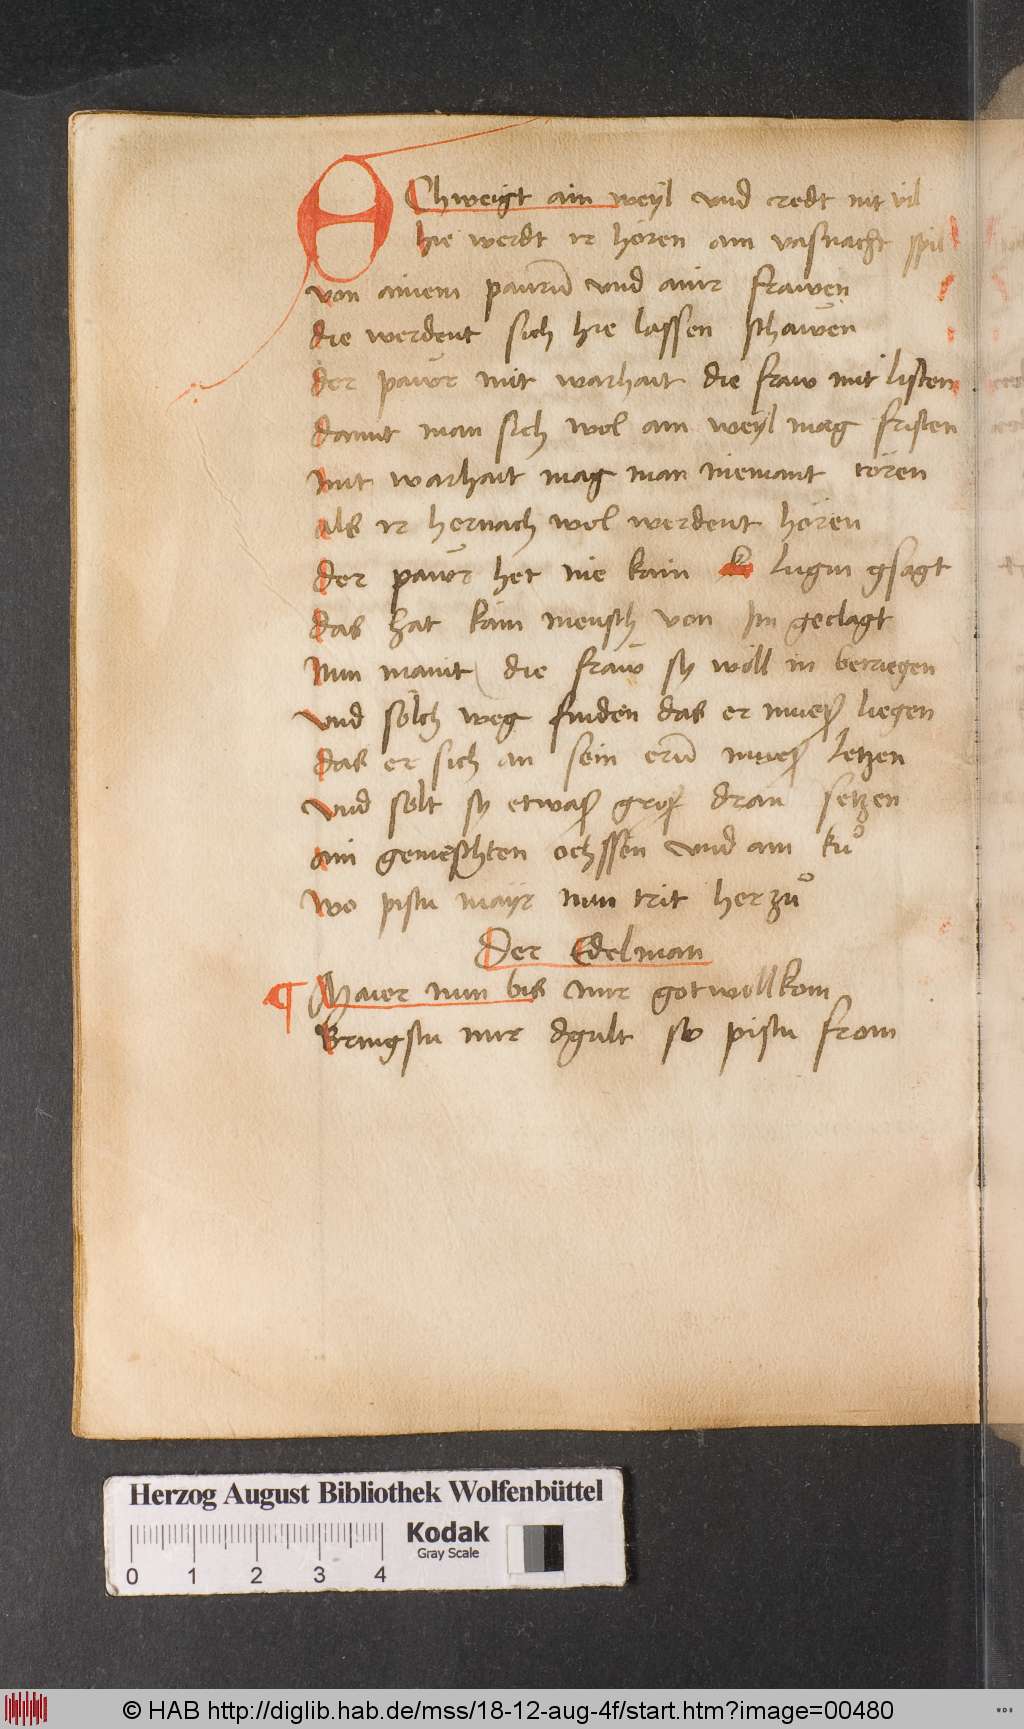 SChweigt ain weyl vnd redt nit vil
hie werdt ir hören ain vasnacht spil
von ainem paurn̄ vnd ainr frawen
die werdent sich hie lassen schawen
der pawr mit warhait die fraw mit listen
damit man sich wol ain weyl mag fristen
mit warhait mag man niemant tören
als ir hernach wol werdent hören
der pawr het nie kain lugin gsagt
das hat kain mensch von Im geclagt
Nun maint die fraw sy wöll in betriegen
vnd sölch weg finden das er mueß liegen
das er sich an sein ern̄ mueß letzen
vnd sölt sy etwaß groß dran setzen
ain gemeschten ochssen vnd ain kuͦ
wo pistu mayr nun trit herzuͦ
Der Edelman
¶ Maier nun bis mir gotwollkom
Bringstu mir dgült so pistu from
Herzog August Bibliothek Wolfenbüttel
Kodak
Gray Scale
0 1 2 3 4
© HAB http://diglib.hab.de/mss/18-12-aug-4f/start.htm?image=00480